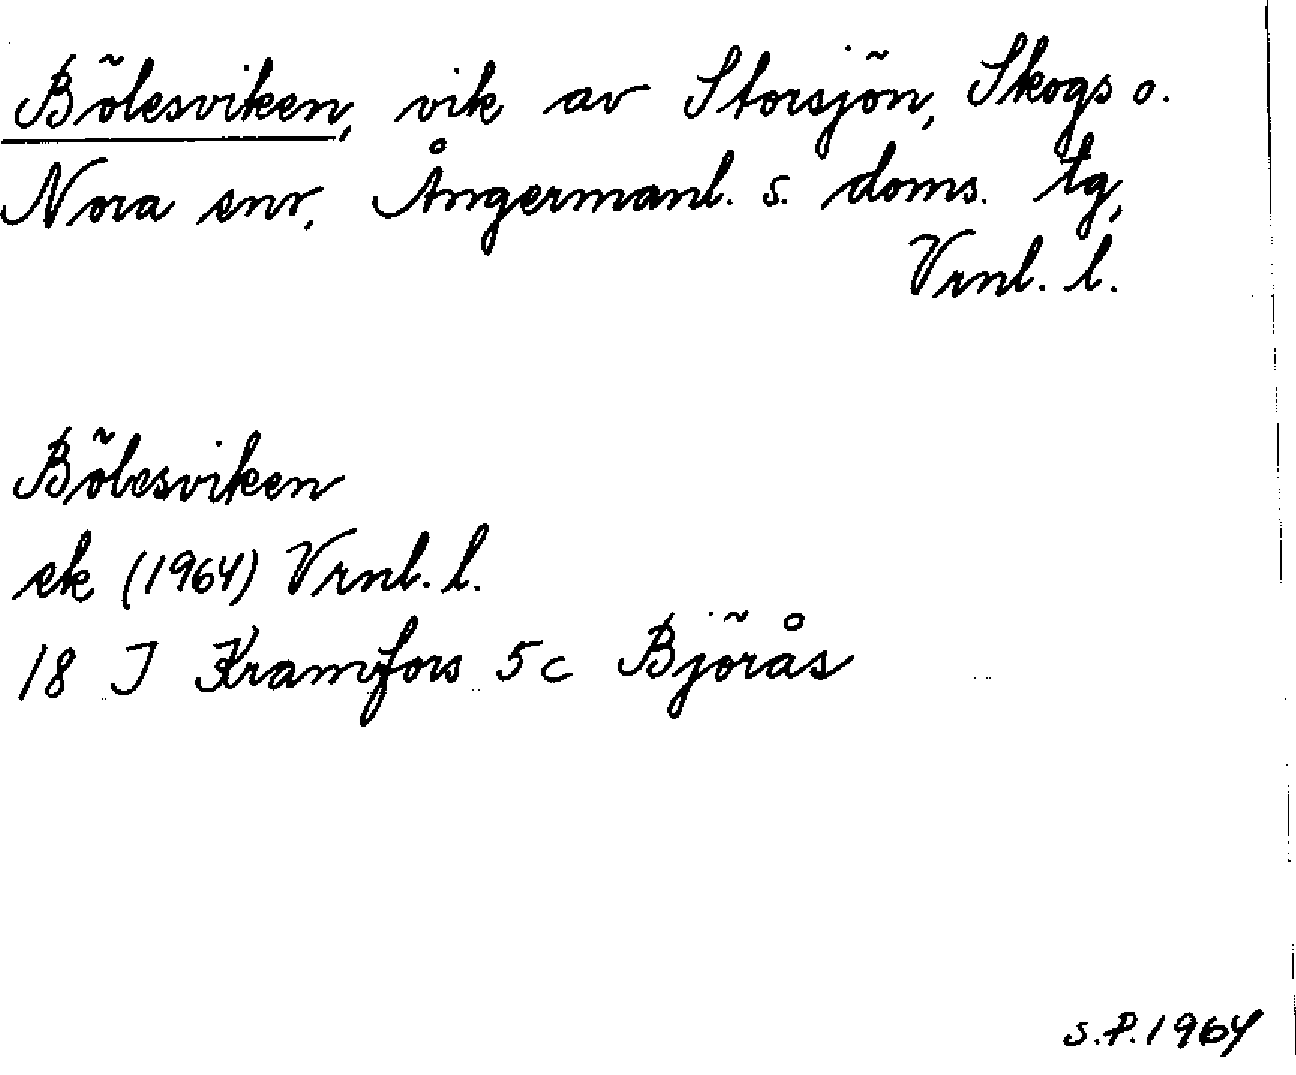 Bölesviken, vik av Storsjön, Skogs o.
Nora snr, Ångermanl. s. doms. tg,
Vrnl. l.
Bölesviken
ek (1964) Vrnl. l.
18 J Kramfors 5c Björås
S.P. 1964